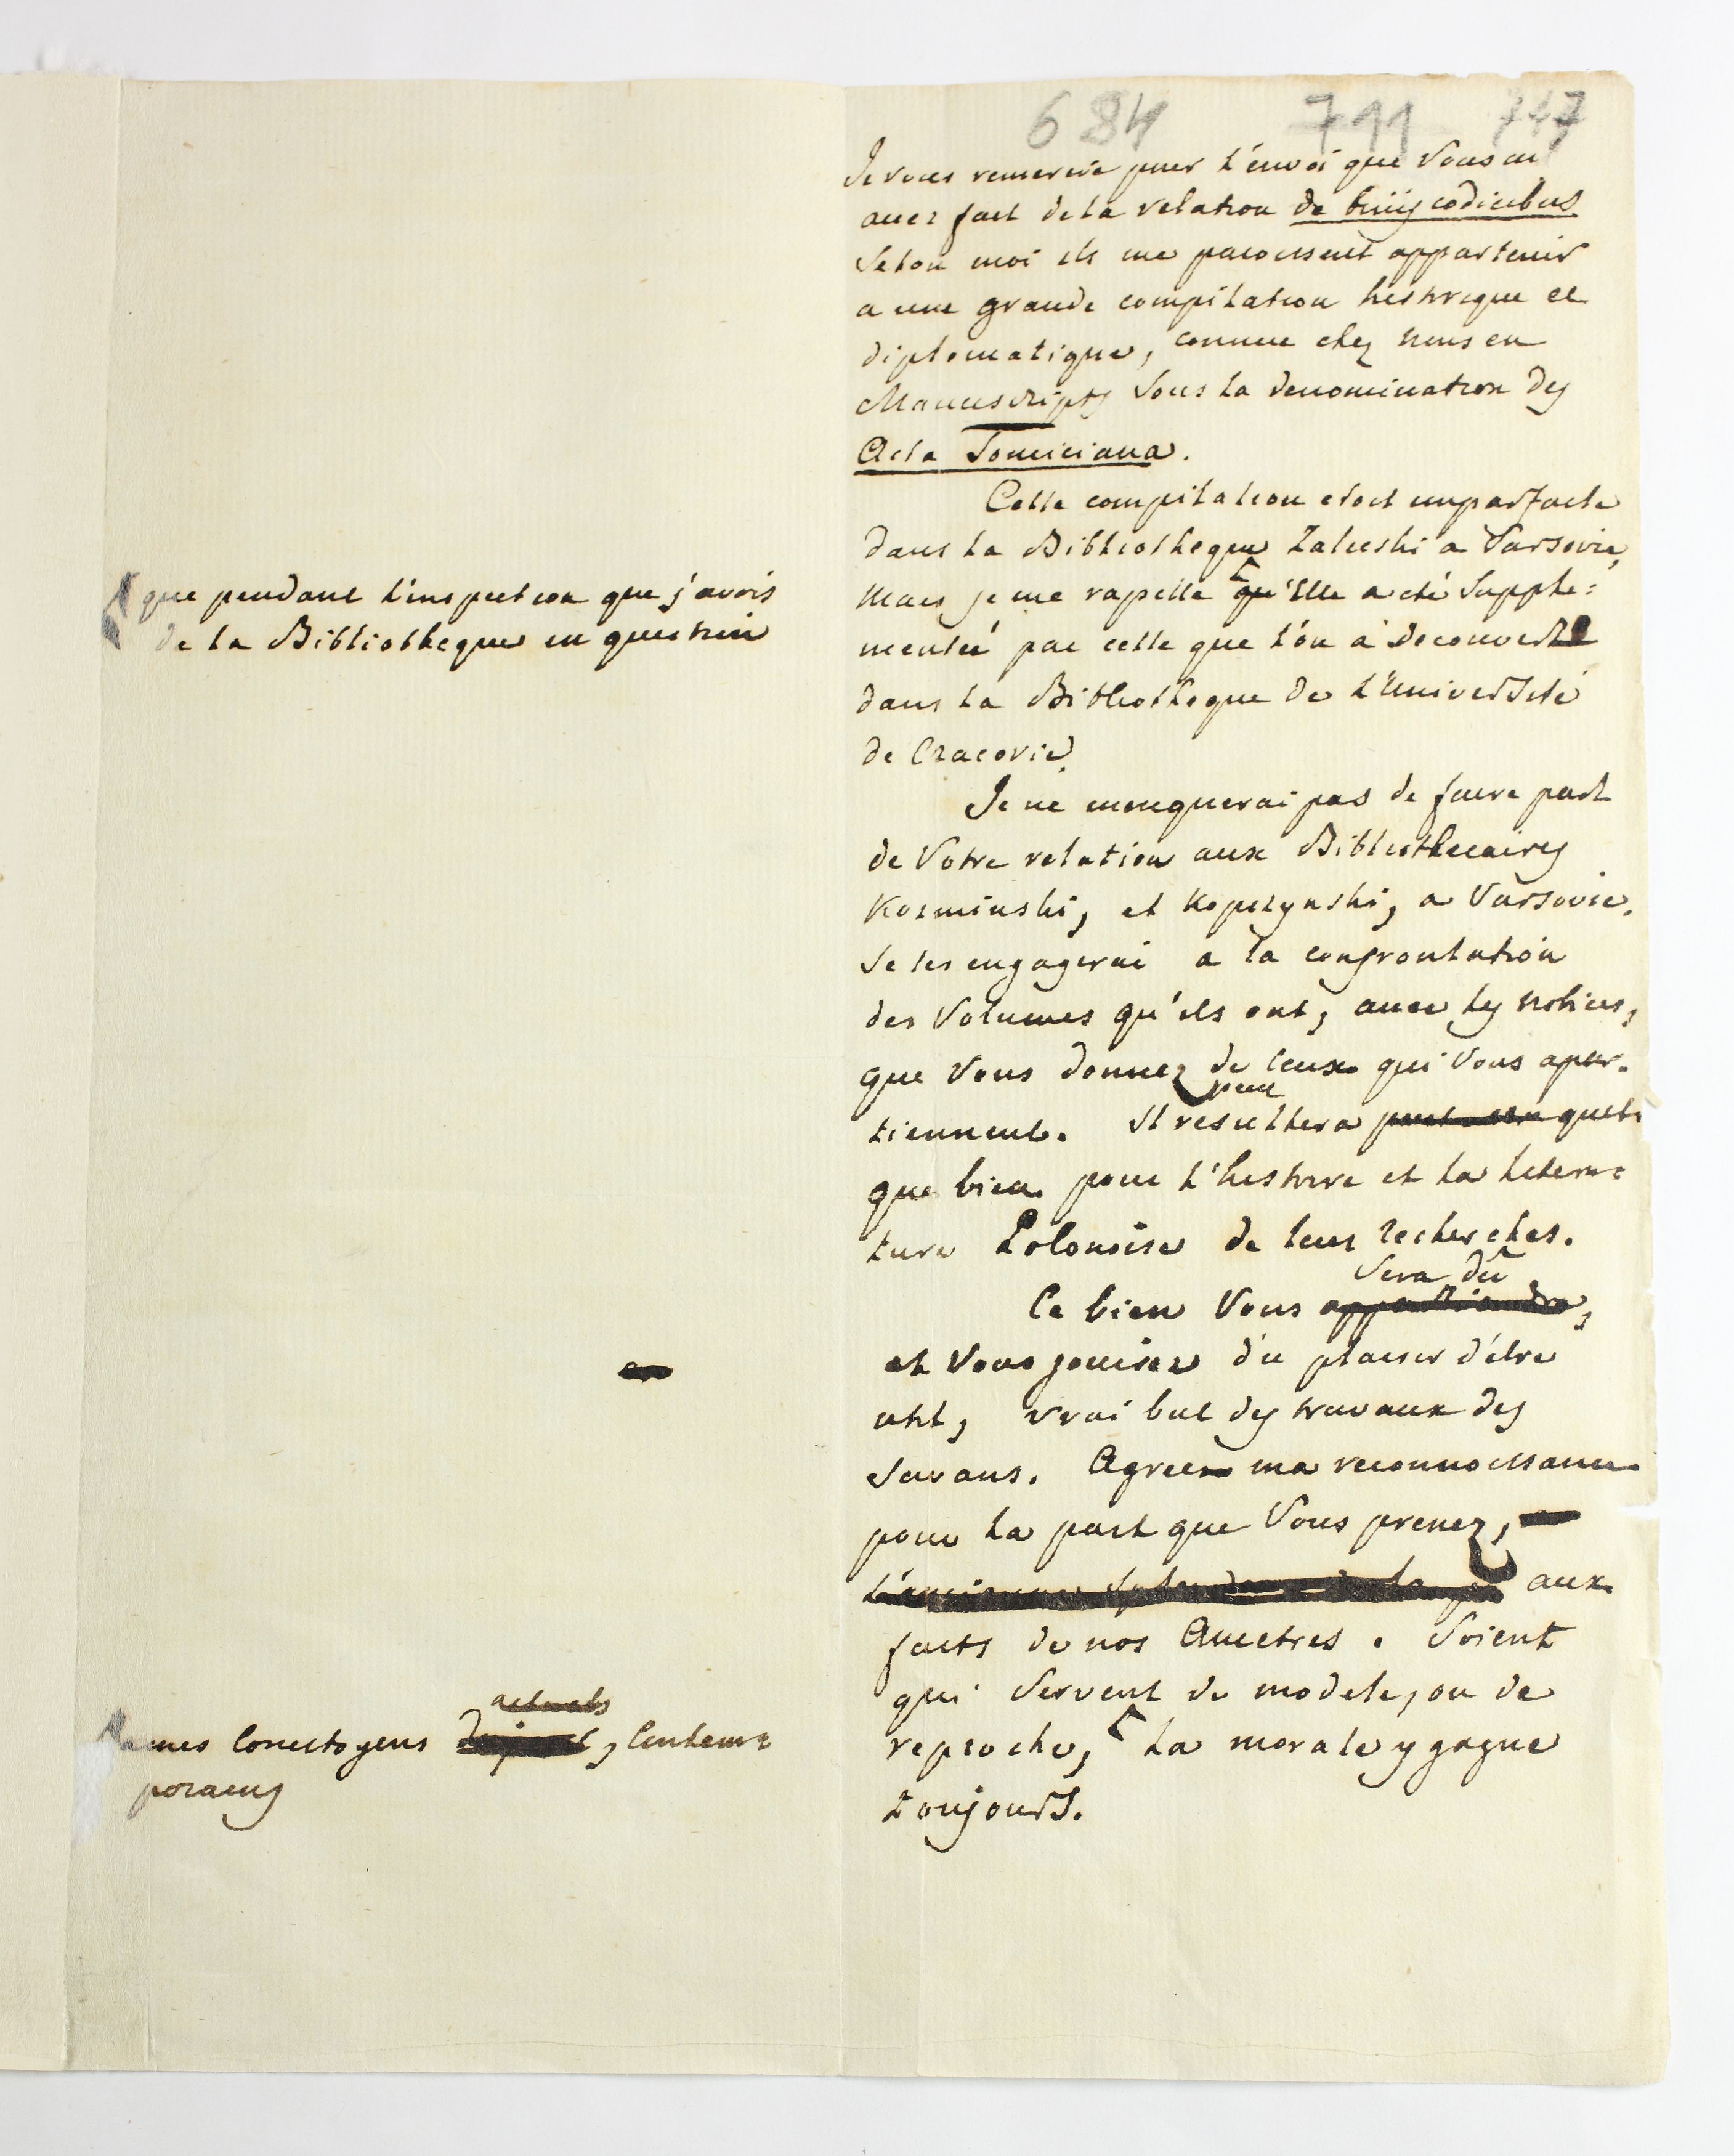 684 791 747
Je vous remercie pour l'envoi que Vous m'
avez fait de la relation de binis codicibus
Selon moi ils me paroissent appartenir
a une grande compilation historique et
diplomatique, connue chez nous en
Manuscripts sous la denomination des
Acta Tomiciana.
Cette compilation etoit imparfaite
dans la Bibliotheque Zaluski a Varsovie,
Mais je me rapelle qu'Elle a été Supple=
mentée par celle que l'on a decouverte
dans la Bibliotheque de L'Université
de Cracovie.
que pendant l'inspection que j'avois
de la Bibliotheque en question
Je ne menquerai pas de faire part
de Votre relation aux Bibliothecaires
Kozminski, et Kopczynski, a Varsovie.
Je les engagerai a la confrontation
des Volumes qu'ils ont, avec les notices,
que Vous donnez de ceux qui Vous apar-
tiennent. Il resultera quel-
que bien pour l'histoire et la litera=
ture Polonoise de leur recherches.
Ce bien Vous sera dû,
et Vous jouirez du plaisir d'être
util, vrai but des travaux des
Savans. Agreez ma reconnoissance
pour la part que Vous prenez,
aux
faits de nos Ancetres. Soient
qui servent de modele, ou de
reproche, la morale y gagne
toujours.
a mes Concitoyens actuels, Contem=
porains